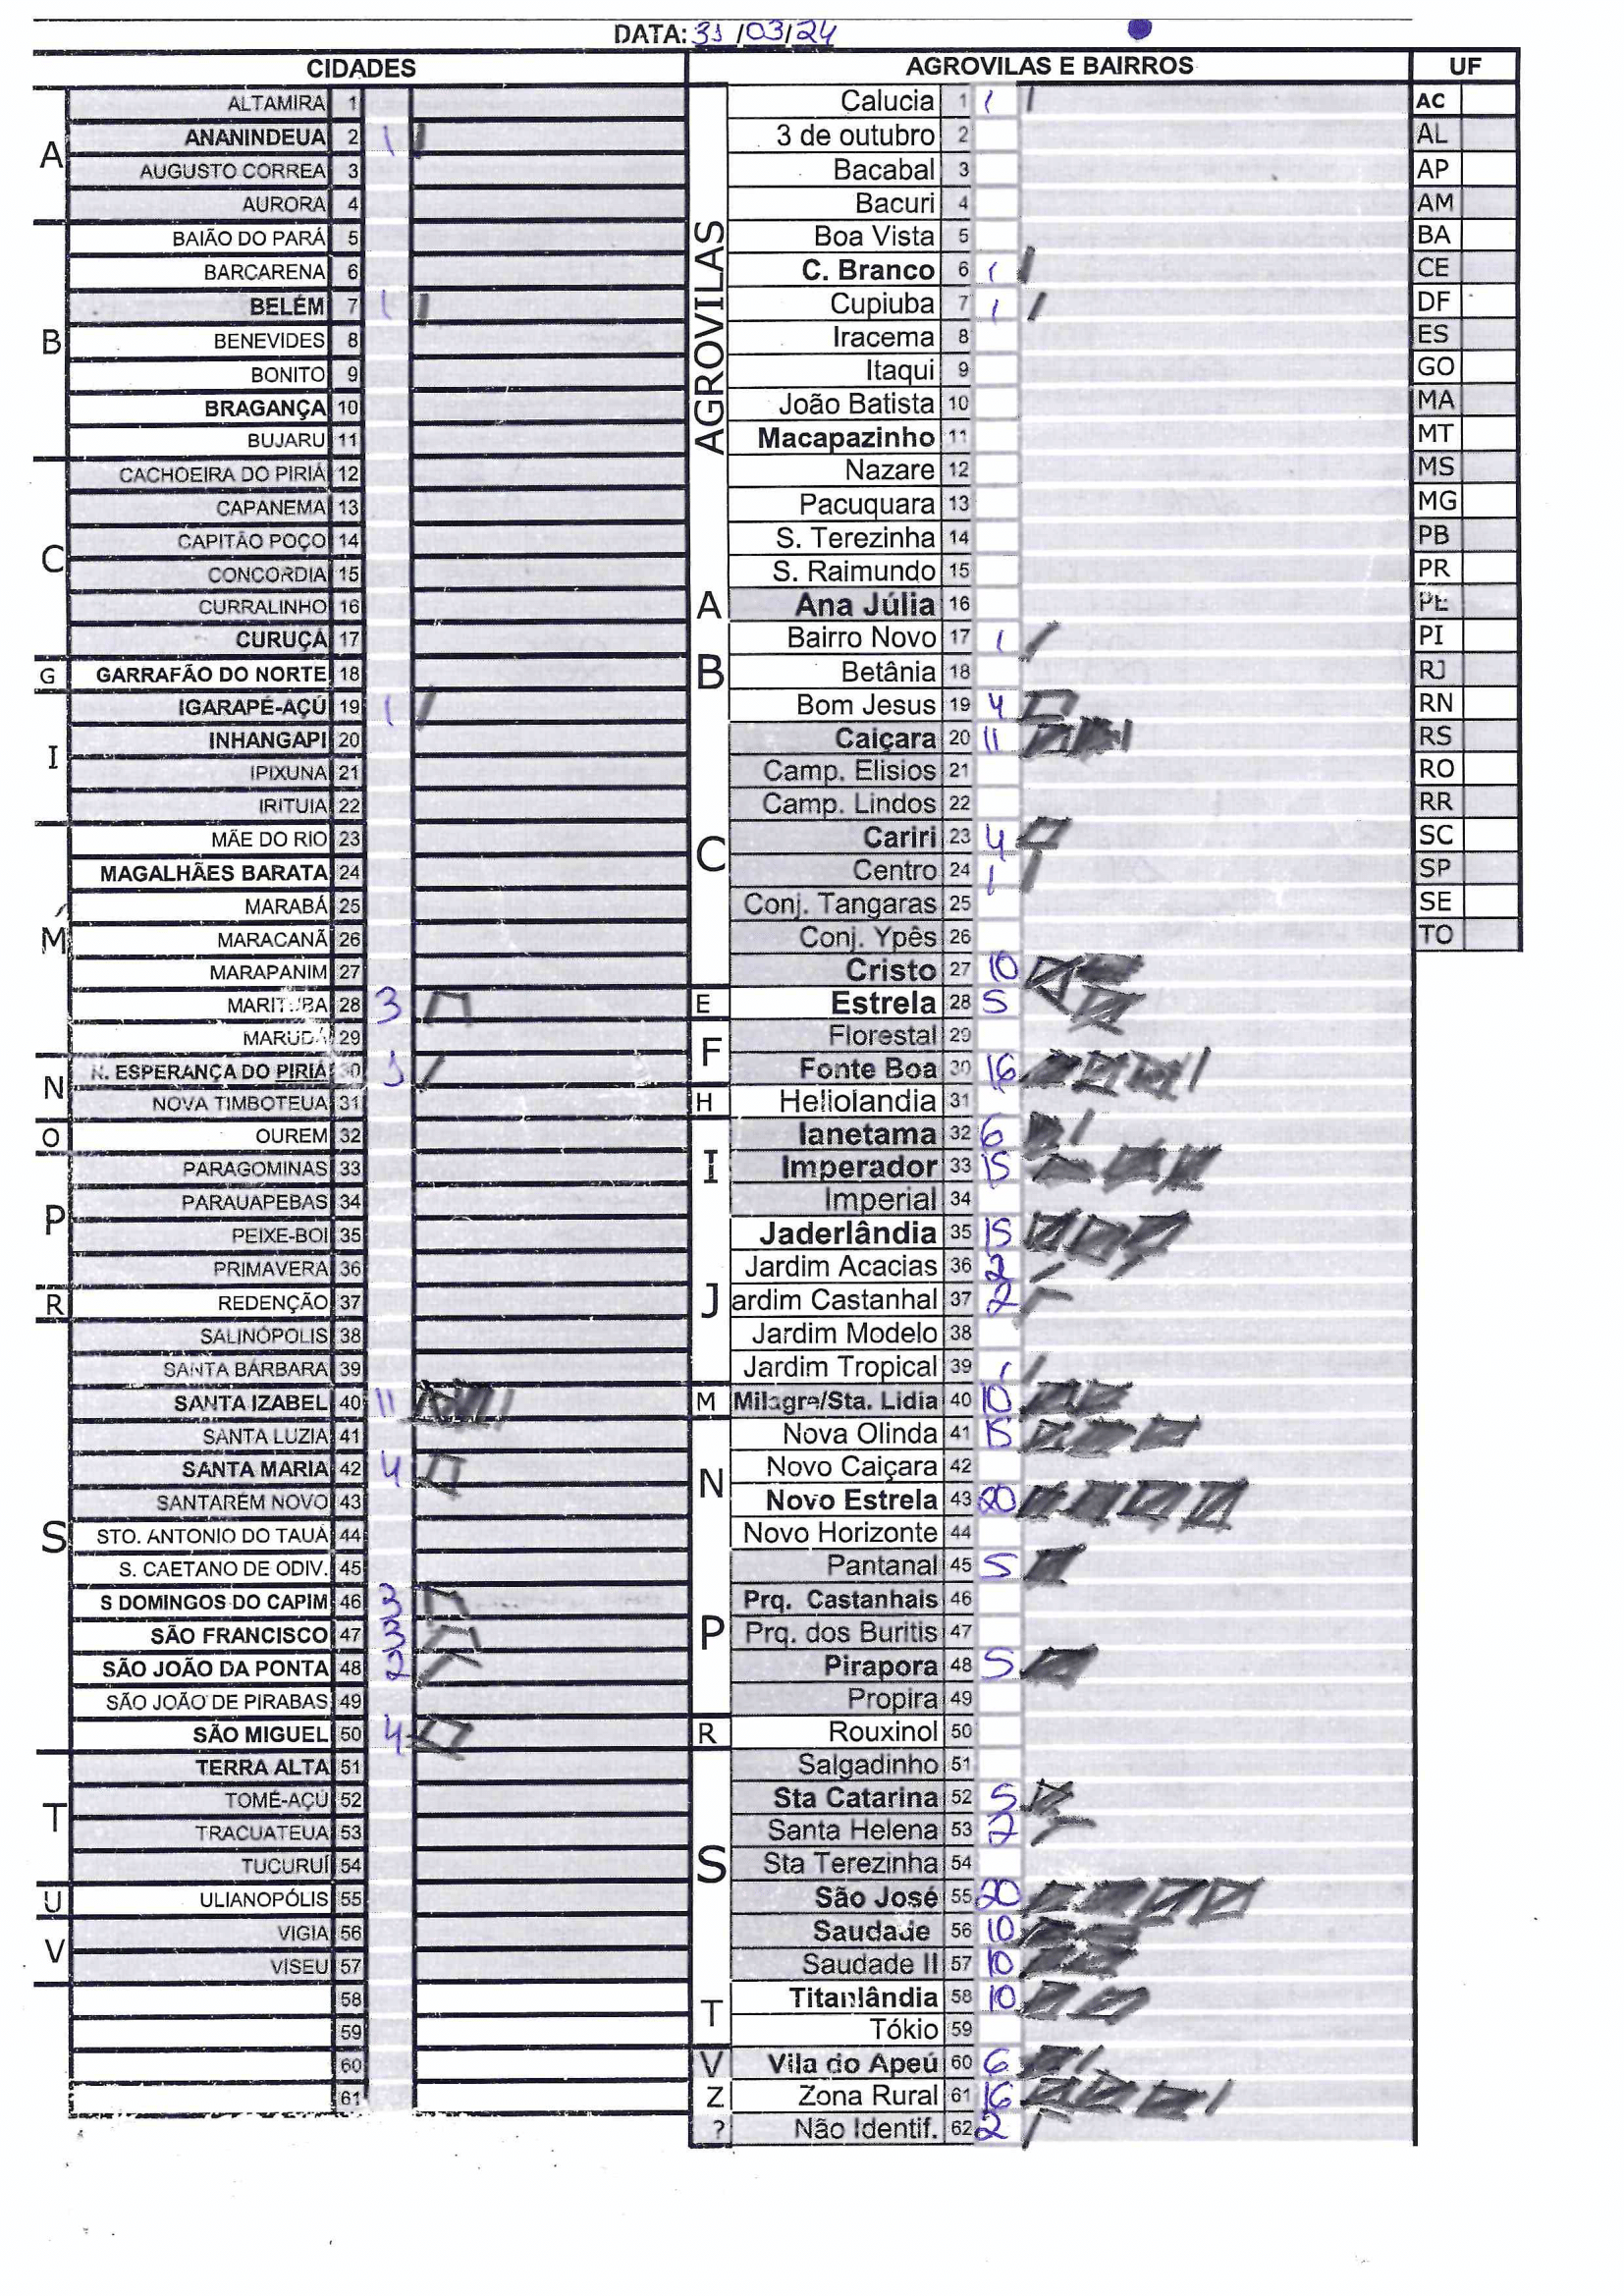 DATA: 31/03/24
CIDADES
A
ALTAMIRA 1
ANANINDEUA 2 1
AUGUSTO CORREA 3
AURORA 4
B
BAIÃO DO PARÁ 5
BARCARENA 6
BELÉM 7 1
BENEVIDES 8
BONITO 9
BRAGANÇA 10
BUJARU 11
C
CACHOEIRA DO PIRIÁ 12
CAPANEMA 13
CAPITÃO POÇO 14
CONCORDIA 15
CURRALINHO 16
CURUÇÁ 17
G
GARRAFÃO DO NORTE 18
I
IGARAPÉ-AÇÚ 19 1
INHANGAPI 20
IPIXUNA 21
IRITUIA 22
M
MÃE DO RIO 23
MAGALHÃES BARATA 24
MARABÁ 25
MARACANÃ 26
MARAPANIM 27
MARITUBA 28 3
MARUDÁ 29
N
N. ESPERANÇA DO PIRIÁ 30 1
NOVA TIMBOTEUA 31
O
OUREM 32
P
PARAGOMINAS 33
PARAUAPEBAS 34
PEIXE-BOI 35
PRIMAVERA 36
R
REDENÇÃO 37
S
SALINÓPOLIS 38
SANTA BÁRBARA 39
SANTA IZABEL 40 11
SANTA LUZIA 41
SANTA MARIA 42 4
SANTARÉM NOVO 43
STO. ANTONIO DO TAUÁ 44
S. CAETANO DE ODIV. 45
S DOMINGOS DO CAPIM 46 3
SÃO FRANCISCO 47 3
SÃO JOÃO DA PONTA 48 2
SÃO JOÃO DE PIRABAS 49
SÃO MIGUEL 50 4
T
TERRA ALTA 51
TOMÉ-AÇÚ 52
TRACUATEUA 53
TUCURUÍ 54
U
ULIANOPÓLIS 55
V
VIGIA 56
VISEU 57
58
59
60
61
AGROVILAS E BAIRROS
AGROVILAS
Calucia 1 1
3 de outubro 2
Bacabal 3
Bacuri 4
Boa Vista 5
C. Branco 6 1
Cupiuba 7 1
Iracema 8
Itaqui 9
João Batista 10
Macapazinho 11
Nazare 12
Pacuquara 13
S. Terezinha 14
S. Raimundo 15
A
Ana Júlia 16
B
Bairro Novo 17 1
Betânia 18
Bom Jesus 19 4
C
Caiçara 20 11
Camp. Elisios 21
Camp. Lindos 22
Cariri 23 4
Centro 24 1
Conj. Tangaras 25
Conj. Ypês 26
Cristo 27 10
E
Estrela 28 5
F
Florestal 29
Fonte Boa 30 16
H
Heliolandia 31
I
Ianetama 32 6
Imperador 33 15
Imperial 34
J
Jaderlândia 35 15
Jardim Acacias 36 2
ardim Castanhal 37 2
Jardim Modelo 38
Jardim Tropical 39 1
M
Milagre/Sta. Lidia 40 10
N
Nova Olinda 41 15
Novo Caiçara 42
Novo Estrela 43 20
Novo Horizonte 44
P
Pantanal 45 5
Prq. Castanhais 46
Prq. dos Buritis 47
Pirapora 48 5
Propira 49
R
Rouxinol 50
S
Salgadinho 51
Sta Catarina 52 5
Santa Helena 53 2
Sta Terezinha 54
São José 55 20
Saudade 56 10
Saudade II 57 10
T
Titanlândia 58 10
Tókio 59
V
Vila do Apeú 60 6
Z
Zona Rural 61 16
?
Não Identif. 62 2
UF
AC
AL
AP
AM
BA
CE
DF
ES
GO
MA
MT
MS
MG
PB
PR
PE
PI
RJ
RN
RS
RO
RR
SC
SP
SE
TO